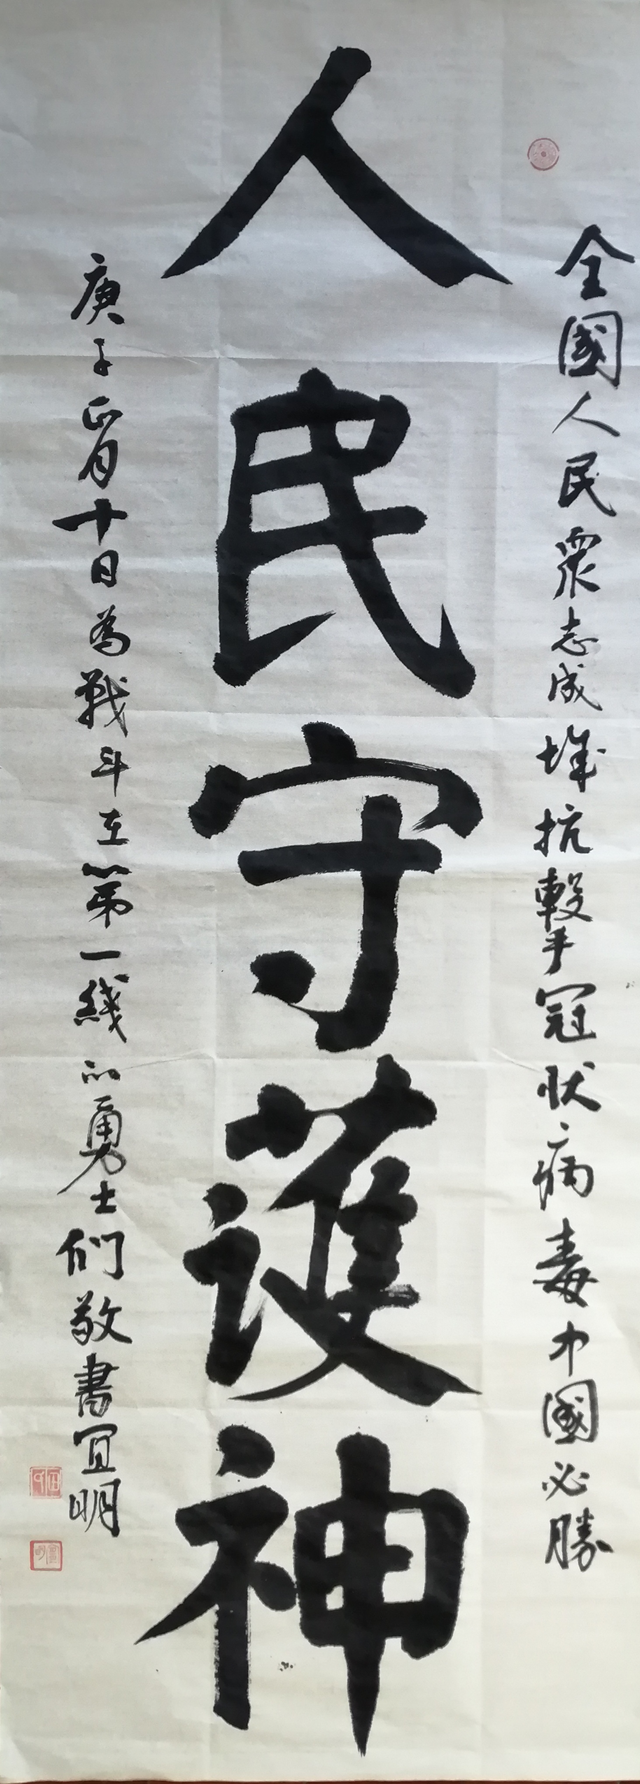 全國人民眾志成城抗擊冠狀病毒中國必勝
人民守護神
庚子正月十日為戰斗在第一綫的勇士們敬書宜明